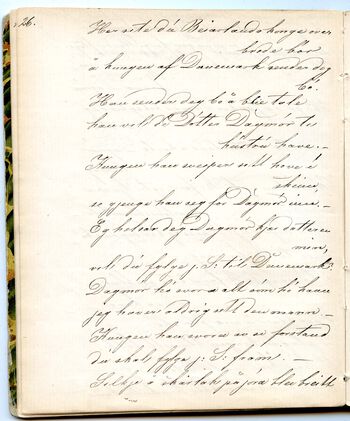 26.
Her site du Beiarlands konge over
brede bor
å kungen af Danemark sender deg
bö.
Han sender deg bö å blie tole
han vill de Dotter Dagmór te
hustru have. —
Kungen han sveiper sitt hove i
skinn
so gjenge han seg for Dagmor inn. —
Eg helsar deg Dagmor kjæ dotteren
min,
vill du fylgje j: S: til Danemark.
Dagmor ho svora alt som ho kunne
jeg haver aldrig sett den mann. —
Kungen han svora av se forstand
du skal fylgje j: S: fram. —
Silkje å skarlak på jora blei breitt